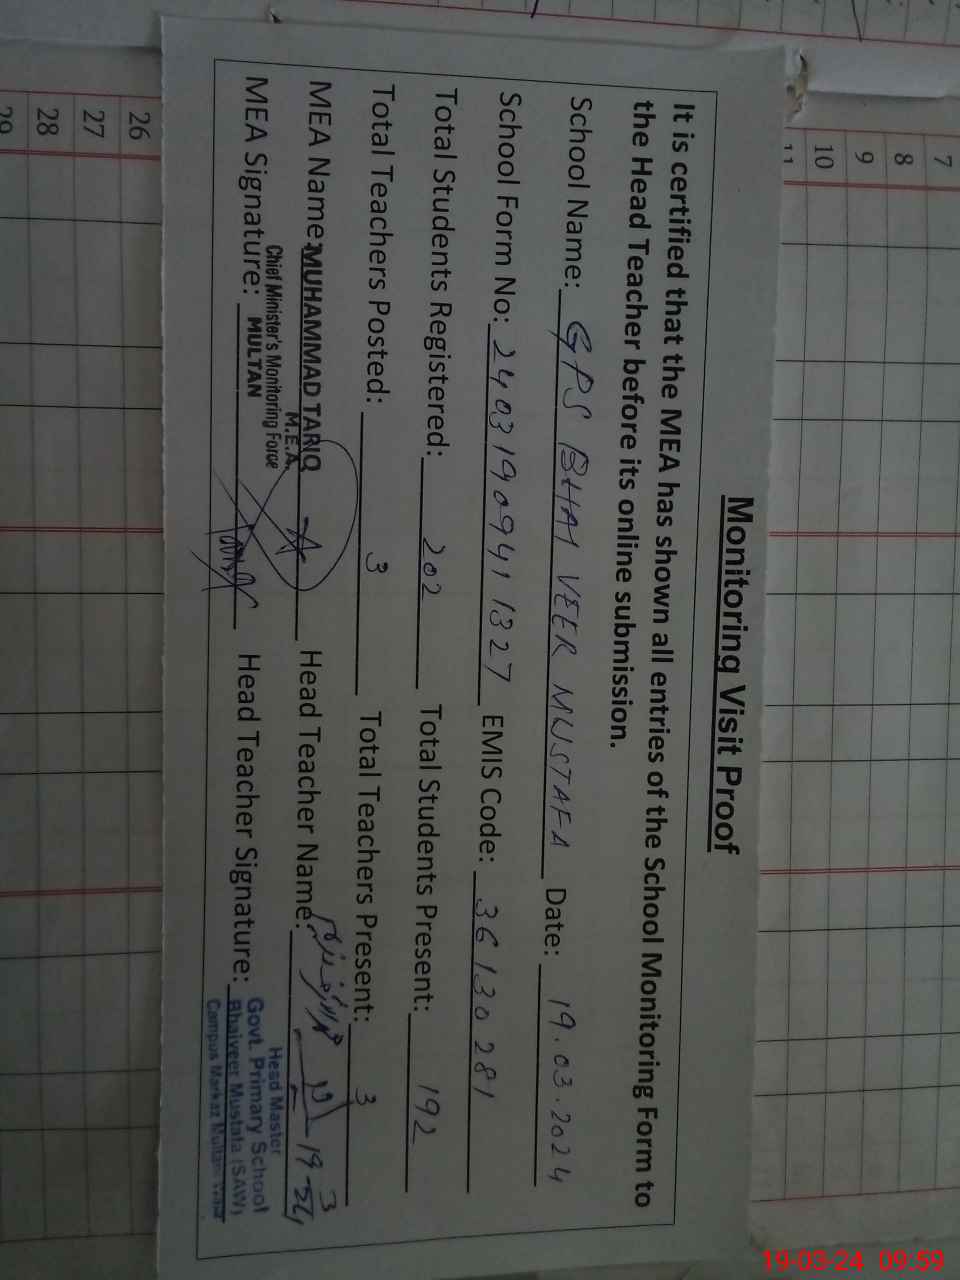 Monitoring Visit Proof
It is certified that the MEA has shown all entries of the School Monitoring Form to
the Head Teacher before its online submission.
School Name: GPS BHAI VEER MUSTAFA Date: 19.03.2024
School Form No: 2403190941327 EMIS Code: 36130281
Total Students Registered: 202 Total Students Present: 192
Total Teachers Posted: 3 Total Teachers Present: 3
MEA Name: MUHAMMAD TARIQ Head Teacher Name:
M.E.A.
Chief Minister's Monitoring Force
MULTAN
MEA Signature: Head Teacher Signature:
Head Master
Govt. Primary School
Bhaiveer Mustafa (SAW)
Campus Markaz Multan
7
8
9
10
11
26
27
28
29
19-03-24 09:59